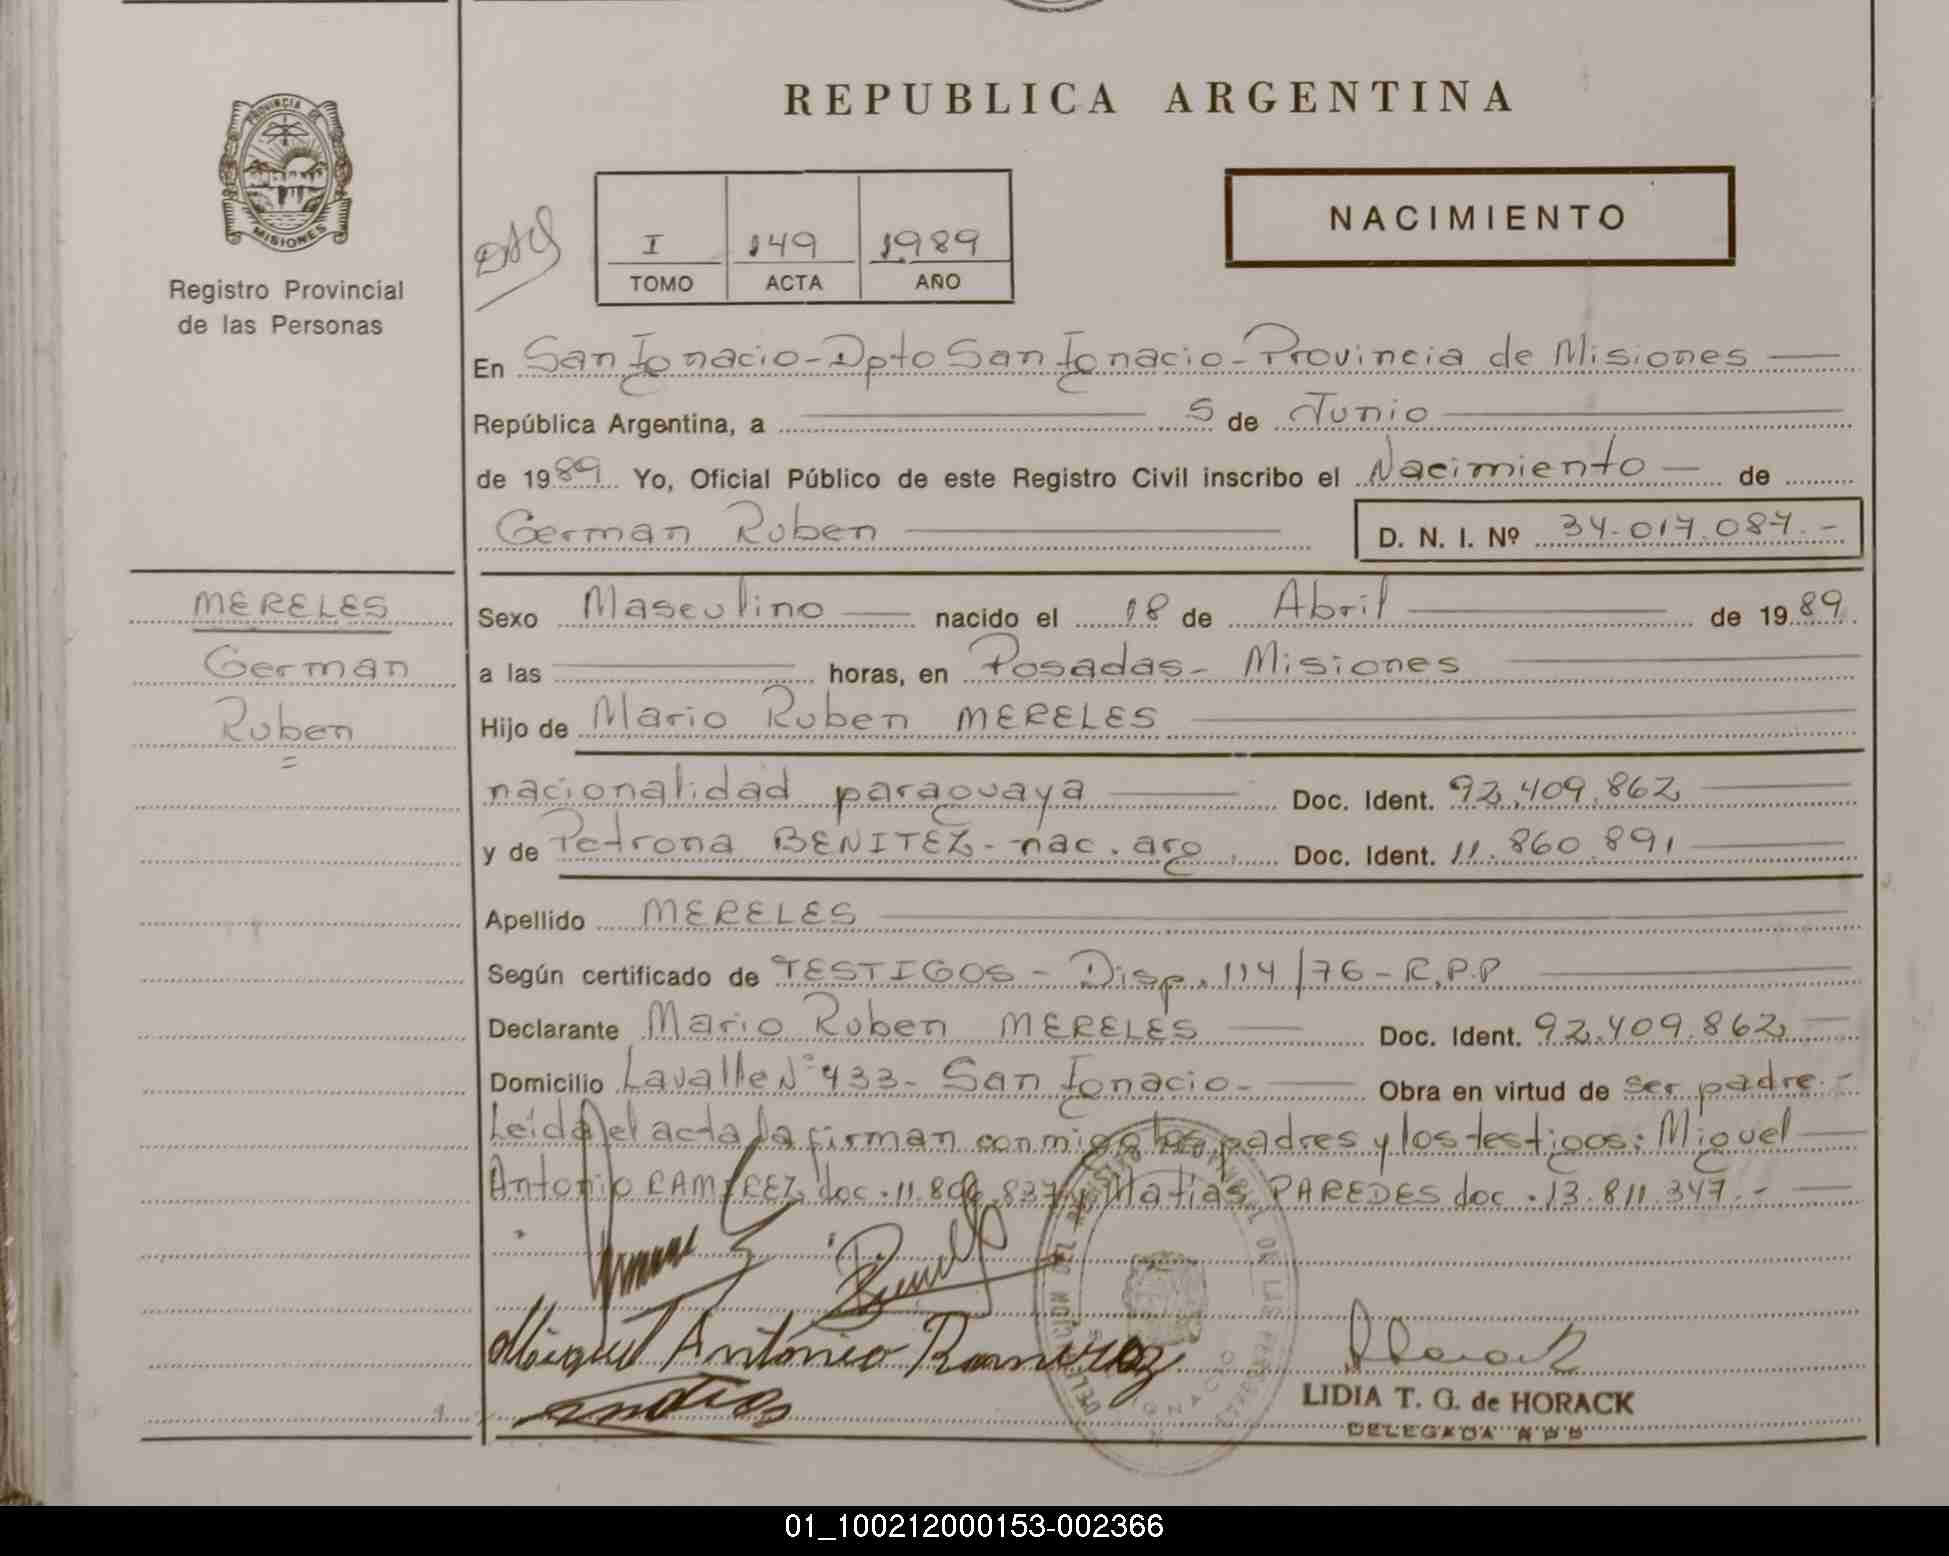 REPUBLICA ARGENTINA
PROVINCIA DE
MISIONES
Registro Provincial
de las Personas
I 149 1989
TOMO ACTA AÑO
NACIMIENTO
En San Ignacio - Dpto San Ignacio - Provincia de Misiones
República Argentina, a 5 de Junio
de 1989 Yo, Oficial Público de este Registro Civil inscribo el Nacimiento de
German Ruben D. N. I. Nº 34.017.087.-
MERELES
German
Ruben
Sexo Masculino nacido el 18 de Abril de 1989
a las horas, en Posadas - Misiones
Hijo de Mario Ruben MERELES
nacionalidad paraguaya Doc. Ident. 92.409.862
y de Petrona BENITEZ - nac. arg. Doc. Ident. 11.860.891
Apellido MERELES
Según certificado de TESTIGOS - Disp. 114/76 - R.P.P
Declarante Mario Ruben MERELES Doc. Ident. 92.409.862
Domicilio Lavalle Nº 433 - San Ignacio - Obra en virtud de ser padre.-
Leida el acta la firman conmigo los padres y los testigos: Miguel
Antonio RAMIREZ doc. 11.804.837 y Matias PAREDES doc. 13.811.347.-
Miguel Antonio Ramirez
LIDIA T. G. de HORACK
DELEGADA
01_100212000153-002366